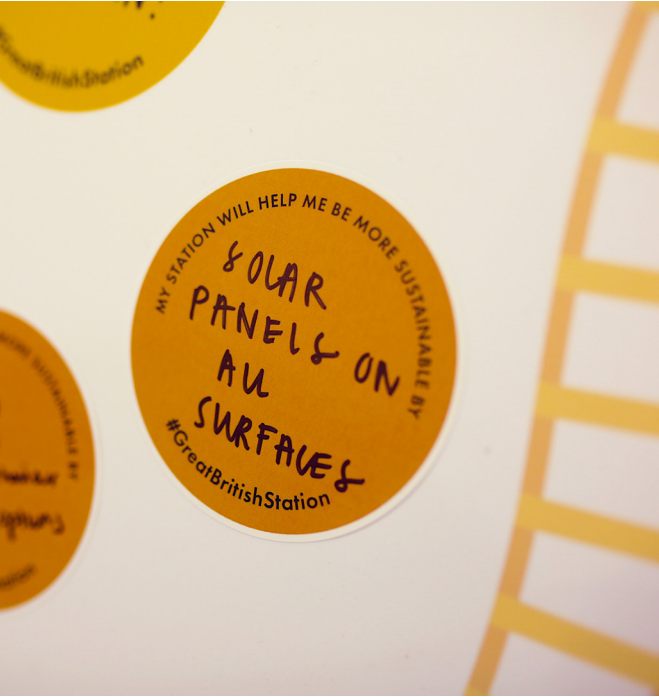 #GreatBritishStation
MY STATION WILL HELP ME BE MORE SUSTAINABLE BY
SOLAR
PANELS ON
ALL
SURFACES
#GreatBritishStation
SUSTAINABLE BY